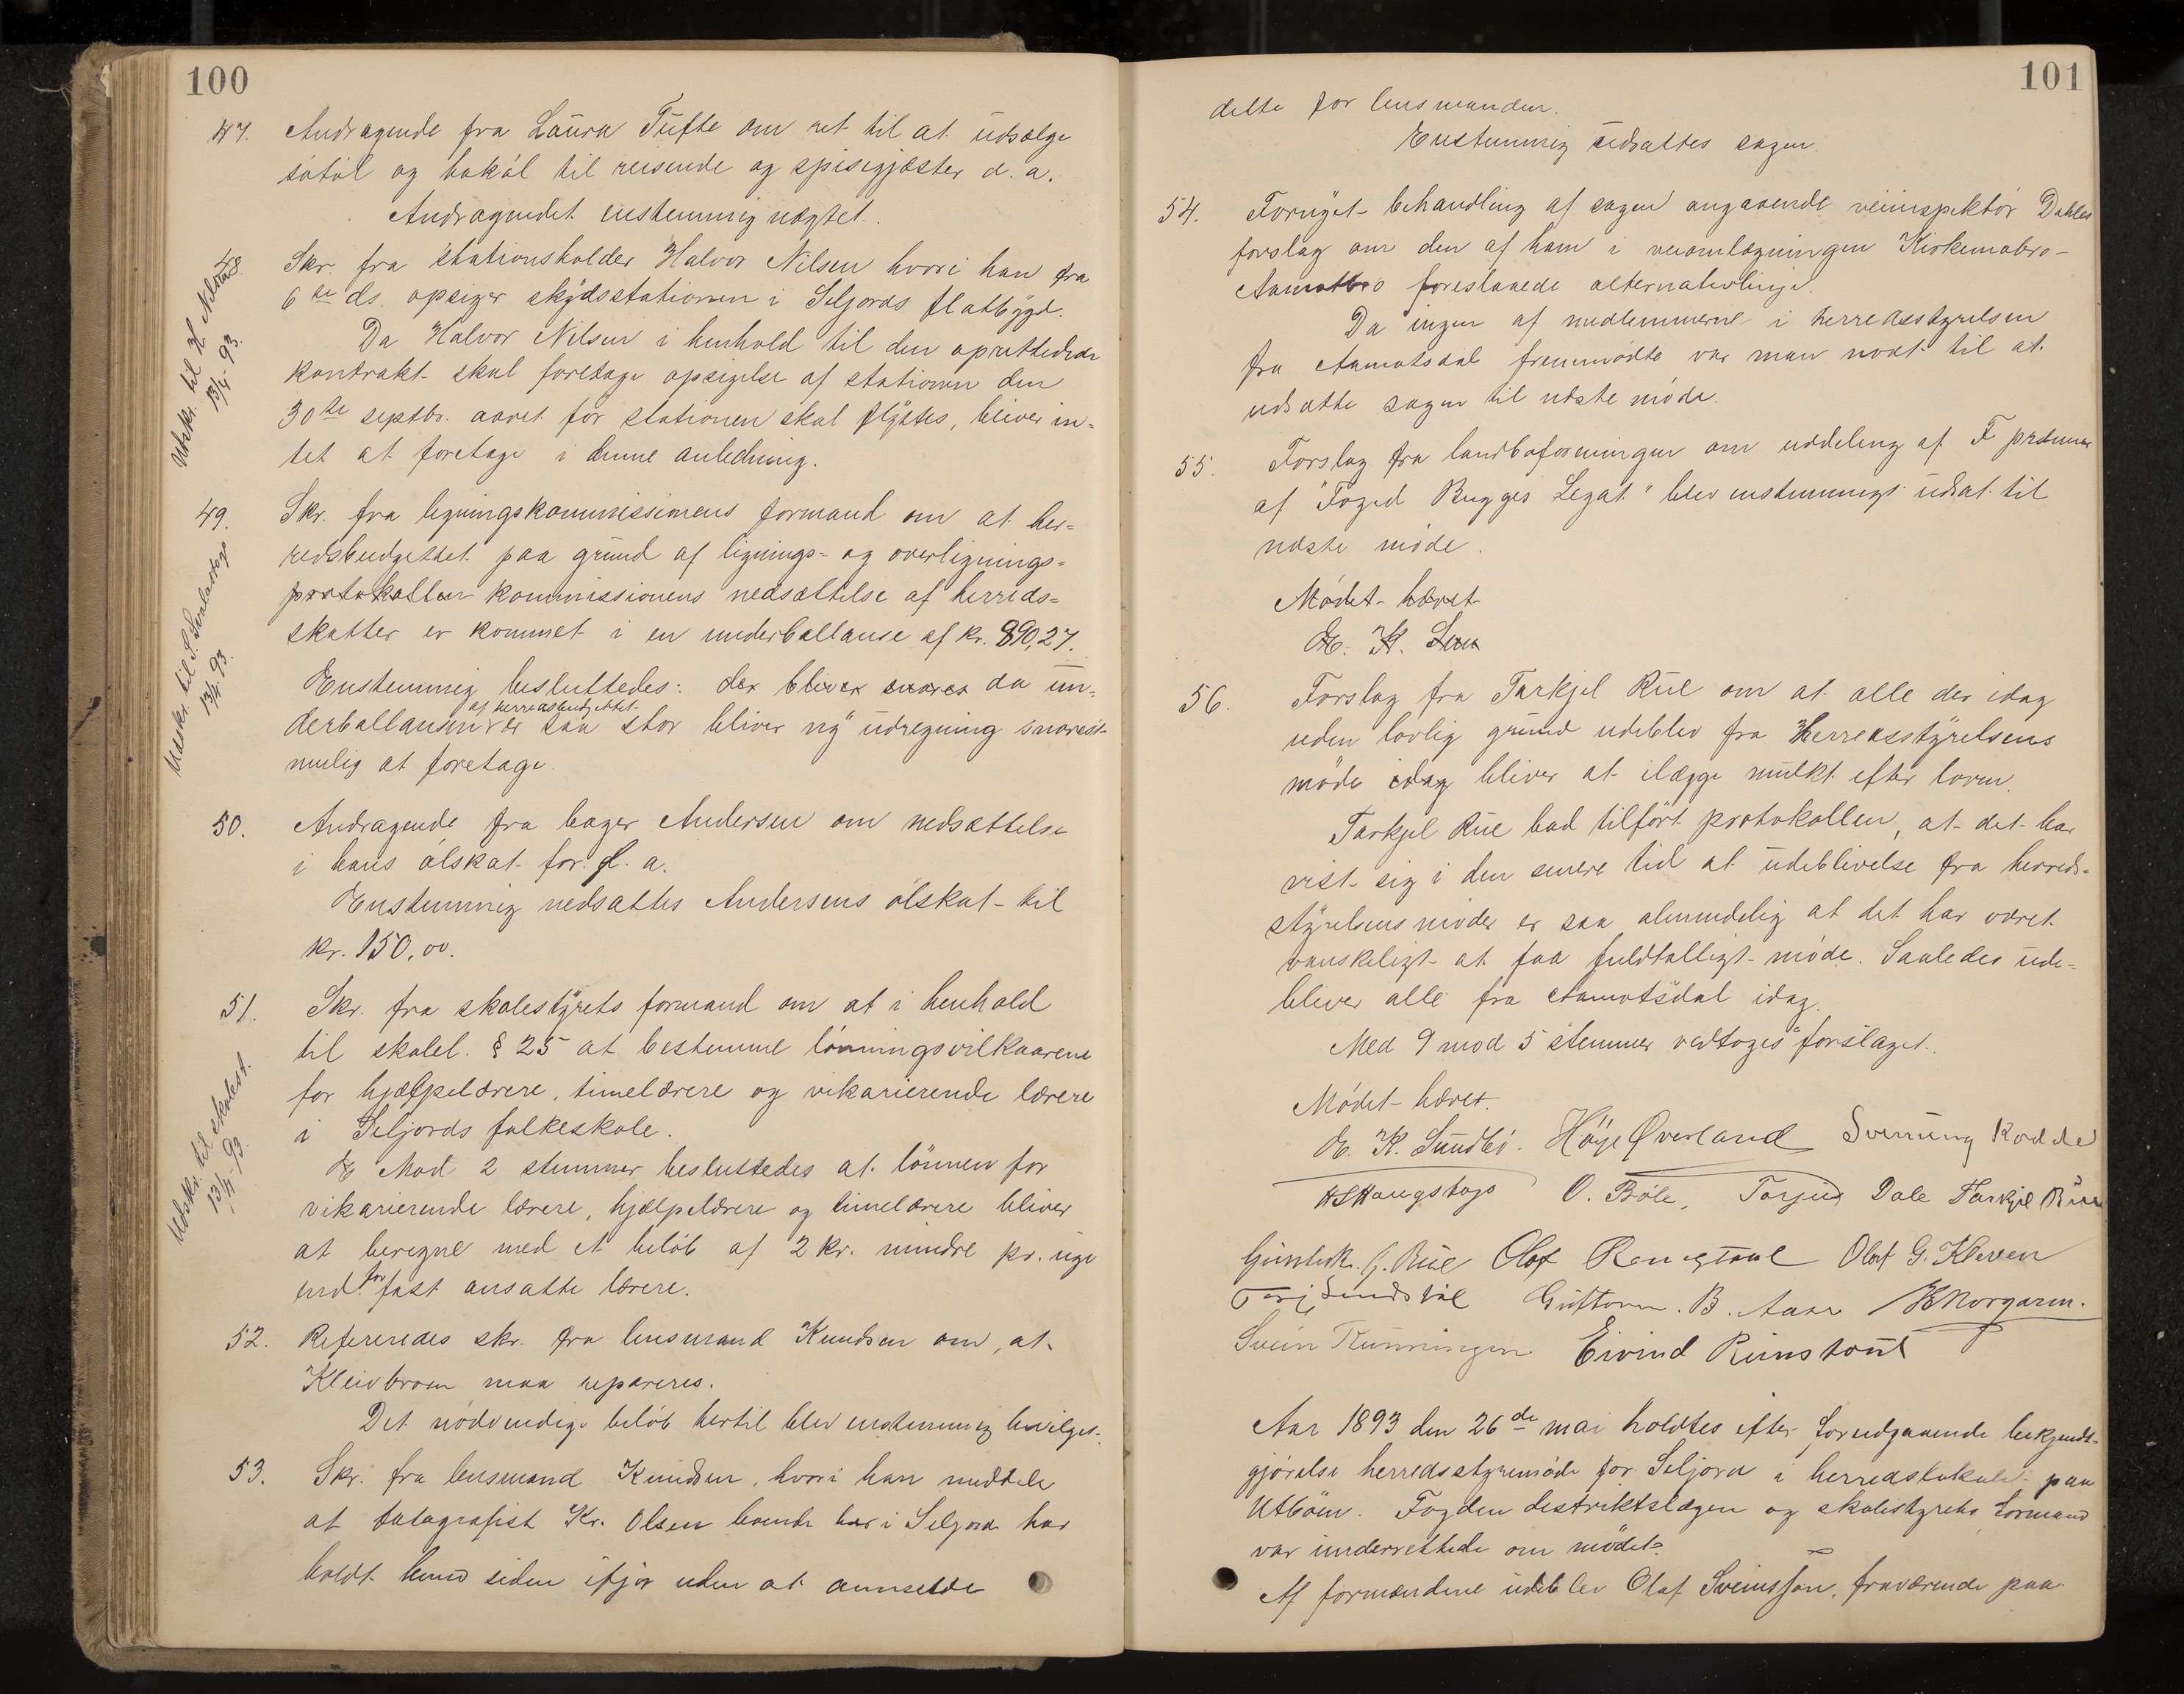 100
47. Andragende fra Laura Tufte om ret til at udsælge
søtøl og bokøl til reisende og spisegjæster d. a.
Andragendet enstemmig nægtet.
48. Skr. fra stationsholder Halvor Nilsen hvori han fra
6te ds. opsiger skydsstationen i Seljords flatbygd.
Da Halvor Nilsen i henhold til den oprettede
kontrakt skal foretage opsigelse af stationen den
30te septbr. aaret før stationen skal flyttes, bliver in-
tet at foretage i denne anledning.
Udskr. til H Nilsen
13/4-93.
49. Skr. fra ligningskommissionens formand om at her-
redsbudgettet paa grund af lignings- og overlignings-
protokollen kommissionens nedsættelse af herreds-
skatter er kommet i en underballanse af kr. 890,27.
Enstemmig besluttedes: der bliver da un-
af herredsbudgettet
derballansen er saa stor bliver ny udregning snarest
mulig at foretage.
Udskr. til S.
13/4 93.
50. Andragende fra bager Andersen om nedsættelse
i hans ølskat for f. a.
Enstemmig nedsattes Andersens ølskat til
kr. 150,00.
51. Skr. fra skolestyrets formand om at i henhold
til skolel. § 25 at bestemme lønningsvilkaarene
for hjælpelærere, timelærere og vikarierende lærere
i Seljords folkeskole.
E Mod 2 stemmer besluttedes at lønnen for
vikarierende lærere, hjælpelærere og timelærere bliver
at beregne med et beløb af 2 kr. mindre pr. uge
end for fast ansatte lærere.
Udskr. til skolest.
13/4-93.
52. Refereredes skr. fra lensmand Knudsen om, at
Kleivbroen maa repareres.
Det nødvendige beløb hertil blev enstemmig bevilget.
53. Skr. fra lensmand Knudsen, hvori han meddele
at fotografist Kr. Olsen boende her i Seljord har
holdt hund siden ifjor uden at anmelde
101
dette for lensmanden.
Enstemmig udsattes sagen.
54. Fornyet behandling af sagen angaaende veiinspektør Dahles
forslag om den af ham i veiomlægningen Kirkemobro-
Aamotbro foreslaaede alternativlinje.
Da ingen af medlemmerne i herredsstyrelsen
fra Aamotsdal fremmødte var man nødt til at
udsætte sagen til næste møde.
55. Forslag fra landboforeningen om uddeling af F præmier
af "Foged Bugges Legat" blev enstemmigt udsat til
næste møde.
Mødet hævet
E. K. Sun
56. Forslag fra Tarkjel Rue om at alle der idag
uden lovlig grund udeblev fra Herredsstyrelsens
møde idag bliver at ilægge mulkt efter loven.
Tarkjel Rue bad tilført protokollen, at det har
vist sig i den senere tid at udeblivelse fra herreds-
styrelsens møder er saa almindelig at det har været
vanskeligt at faa fuldtalligt møde. Saaledes ude-
bliver alle fra Aamotsdal idag.
Med 9 mod 5 stemmer vedtoges forslaget.
Mødet hævet.
E. K. Sundbø. Høye Øverland Svenning Kodde
O. Bøle, Tarjus Dale Tarkjel Rue
Gunleik. G. Rue Olof G. Kleven
Guttorm. B. Aase
Svein Runningen Eivind
Aar 1893 den 26de mai holdtes efter forudgaaende bekjendt-
gjørelse herredsstyremøde for Seljord i herredslokalet paa
Utbøen. Fogden distriktslægen og skolestyrets formand
var underrettede om mødet.
Af formændene udeblev Olaf Sveinsson, fraværende paa